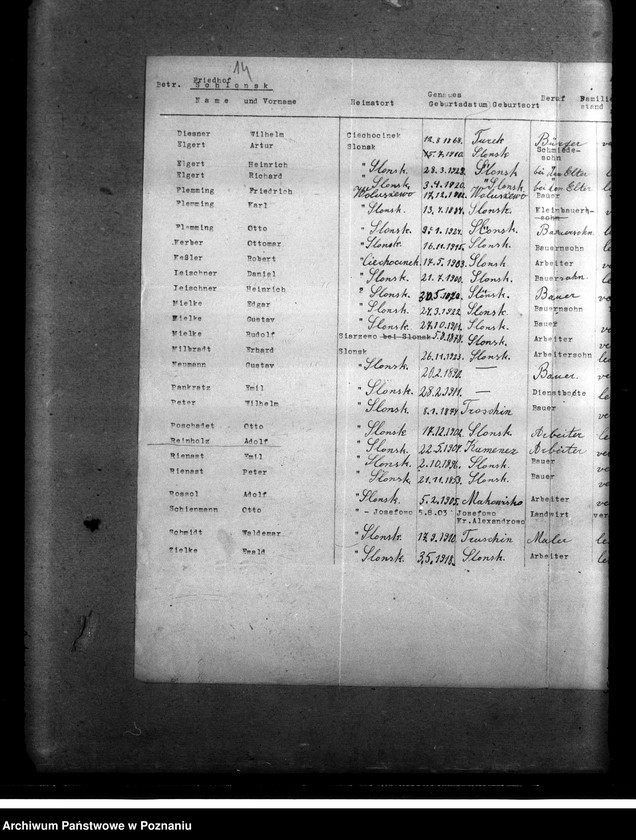 14
Betr. Friedhof Schlonsk
Name und Vorname Heimatort Genaues Geburtsdatum Geburtsort Beruf Familie stand
Diesner Wilhelm Ciechocinek Turek Bürger
Elgert Artur Slonsk Slonsk Schmiede-sohn
Elgert Heinrich " Slonsk 28.3.1929 Slonsk bei den Elter
Elgert Richard " Slonsk. 3.9.1920 " Slonsk. bei dem Elter
Flemming Friedrich Woluszewo 17.12.1882 Woluszewo Bauer
Flemming Karl " Slonsk. 13.7.1884 Slonsk. Kleinbauern-sohn
Flemming Otto " Slonsk. Slonsk. Bauersohn
Kerber Ottomar " Slonsk. 16.11.1915. Slonsk. Bauernsohn
Keßler Robert " Ciechocinek 17.5.1903. Slonsk Arbeiter
Leischner Daniel " Slonsk. 21.7.1900. Slonsk. Bauersohn
Leischner Heinrich " Slonsk. Slonsk. Bauer
Mielke Edgar " Slonsk. 27.3.1922. Slonsk. Bauernsohn
Mielke Gustav " Slonsk. 27.10.1901. Slonsk. Bauer
Mielke Rudolf Siarzewo bei Slonsk 5.8.1878. Slonsk. Arbeiter
Milbradt Erhard Slonsk 26.11.1923. Slonsk. Arbeitersohn
Neumann Gustav " Slonsk. 20.2.1892 — Bauer.
Pankratz Emil " Slonsk. 28.2.1911. — Dienstbote
Peter Wilhelm " Slonsk. 8.1.1894 Troschin Bauer
Poschadet Otto " Slonsk 17.12.1902. Slonsk. Arbeiter
Reinholz Adolf " Slonsk. 22.5.1907. Kamenez Arbeiter
Rienast Emil " Slonsk. 2.10.1896. Slonsk. Bauer
Rienast Peter " Slonsk 21.11.1853. Slonsk. Bauer
Rossol Adolf " Slonsk. 5.2.1905. Makowisko Arbeiter
Schiemann Otto " - Josefowo 5.8.03 Josefowo Kr.Alexandrowo Landwirt ver
Schmidt Waldemar " Slonsk. 17.9.1910. Truschin Maler
Zielke Ewald " Slonsk. 3.5.1918. Slonsk. Arbeiter
Archiwum Państwowe w Poznaniu